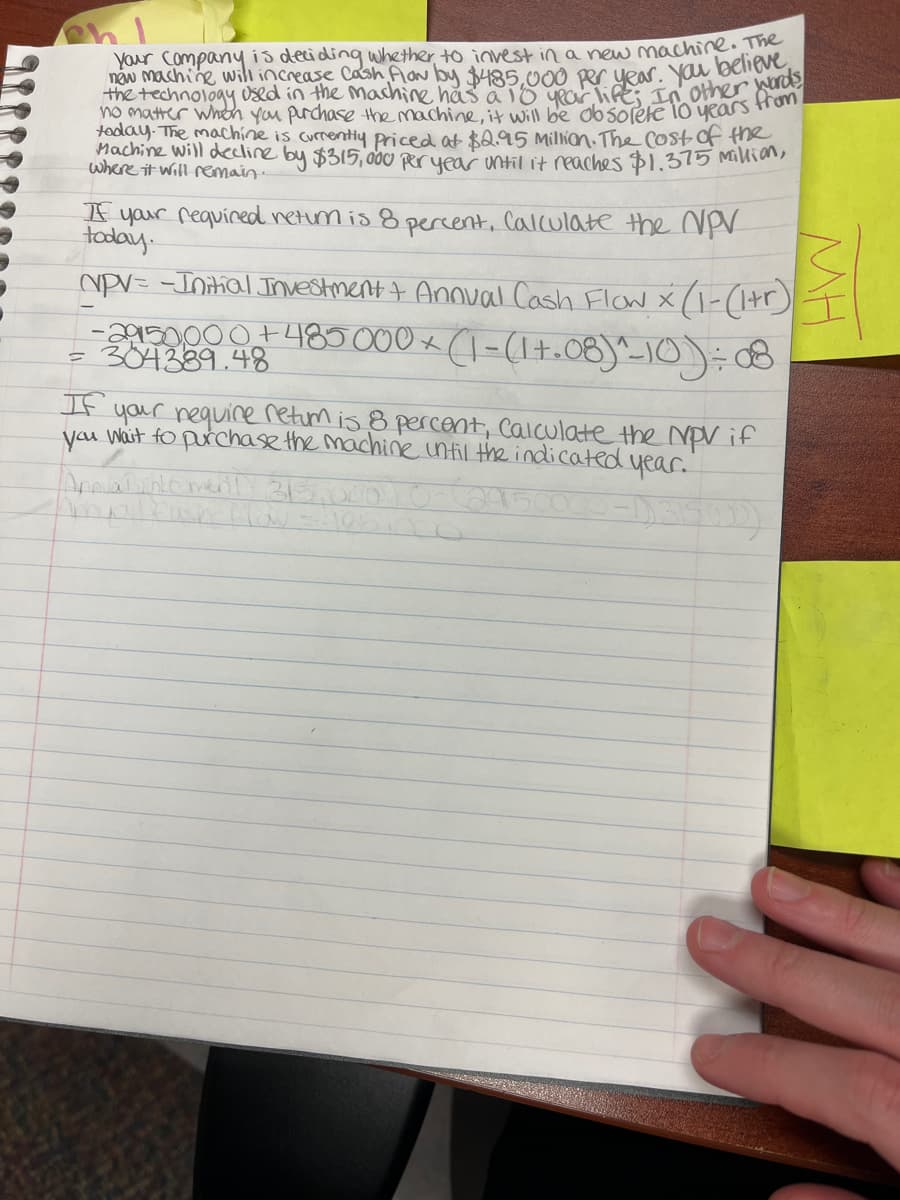 Ch 1
Your company is deciding whether to invest in a new machine. The
new machine will increase cash flow by $485,000 per year. You believe
the technology used in the machine has a 10 year life; In other words,
no matter when you purchase the machine, it will be obsolete 10 years from
today. The machine is currently priced at $2.95 Million. The cost of the
Machine will decline by $315,000 per year until it reaches $1.375 Million,
where it will remain.
If your required return is 8 percent, Calculate the NPV
today.
NPV = -Initial Investment + Annual Cash Flow × (1-(1+r)
-2950000 + 485000 × (1-(1+.08)^-10) ÷ .08
= 304389.48
If your require return is 8 percent, Calculate the NPV if
you wait to purchase the machine until the indicated year.
HW